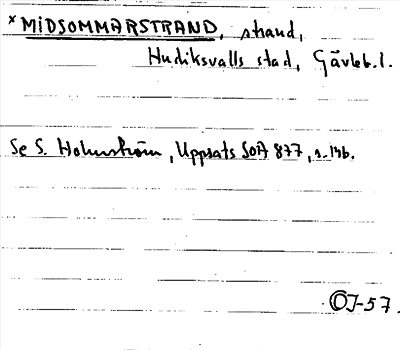 *MIDSOMMARSTRAND, strand,
Hudiksvalls stad, Gävleb.l.
Se S. Holmström, Uppsats SOA 877, s. 146.
OJ-57.